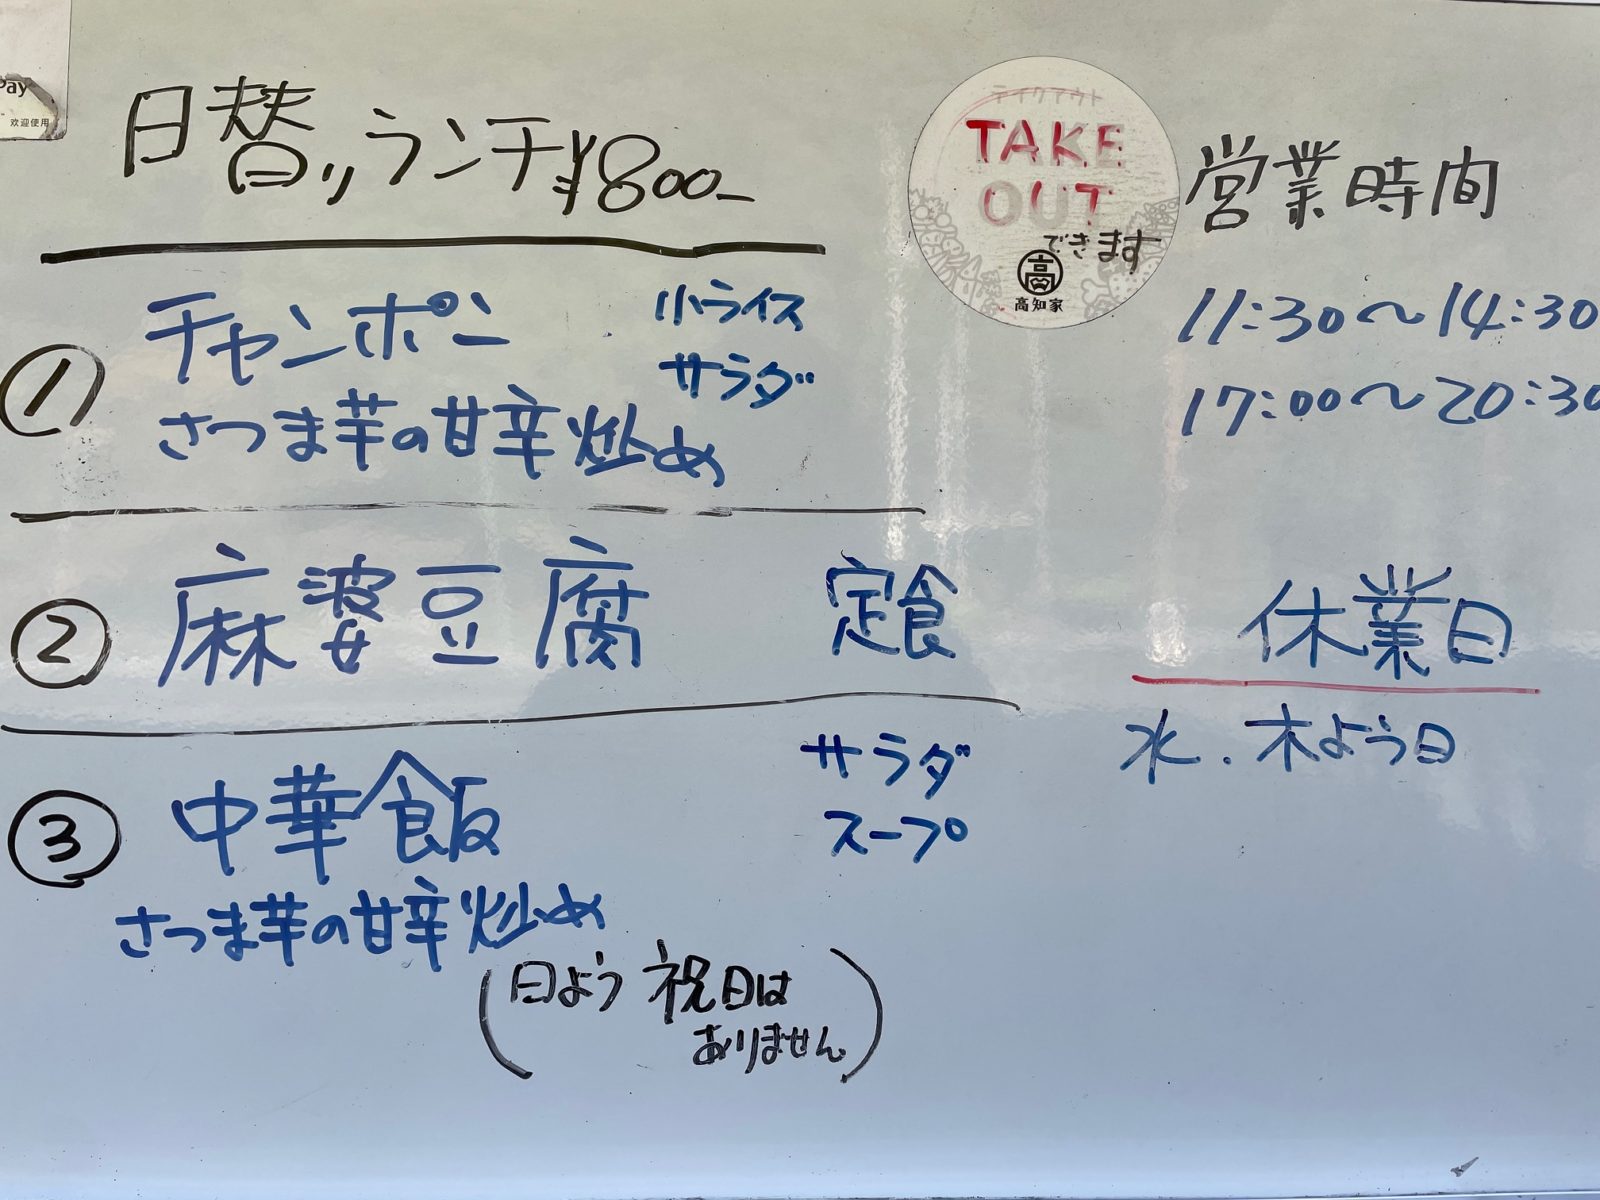 Pay
欢迎使用
日替りランチ¥800-
① チャンポン 小ライス
サラダ
さつま芋の甘辛炒め
② 麻婆豆腐 定食
③ 中華飯 サラダ
スープ
さつま芋の甘辛炒め
(日よう 祝日は
ありません)
テイクアウト
TAKE
OUT
できます
高
高知家
営業時間
11:30〜14:30
17:00〜20:30
休業日
水.木よう日